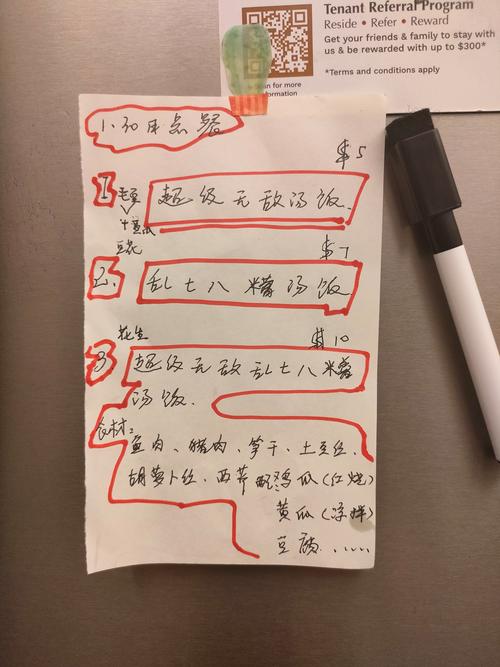 Tenant Referral Program
Reside • Refer • Reward
Get your friends & family to stay with
us & be rewarded with up to $300*
*Terms and conditions apply
Scan for more
information
$5
1 毛豆 超级无敌汤饭.
豆花
$7
2. 乱七八糟汤饭
花生 $10
3 超级无敌乱七八糟
汤饭.
食材:
鱼肉、猪肉、笋干、土豆丝、
胡萝卜丝、西芹 鸡瓜(红烧)
黄瓜(凉拌)
豆腐......